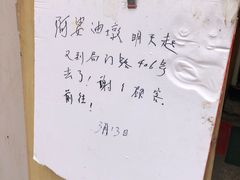 阿婆油墩 明天起
又到局门路406号
去了！谢谢顾客
前往！
3月13日